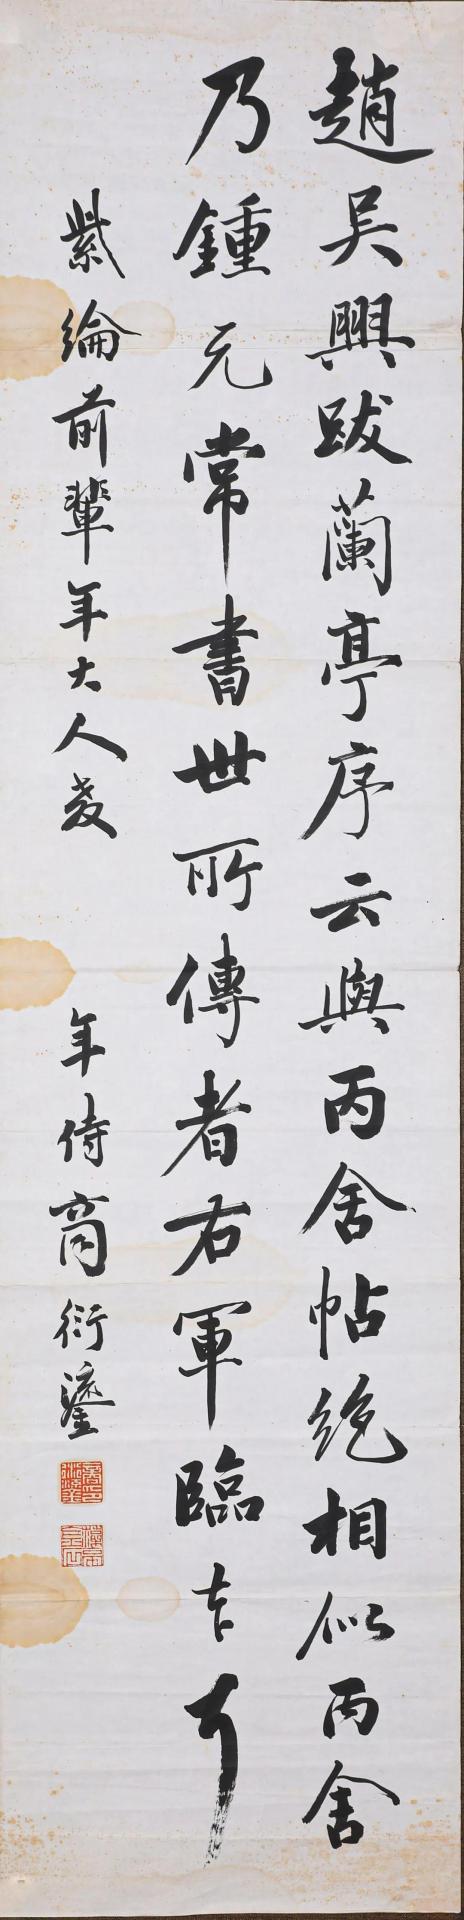 趙吳興跋蘭亭序云與丙舍帖絶相似丙舍
乃鍾元常書世所傳者右軍臨本耳
紫綸前輩年大人教
年侍商衍鎏